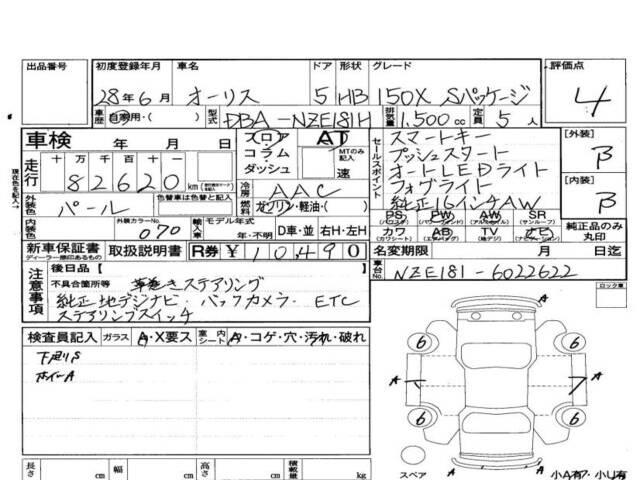 出品番号 初度登録年月 車名 ドア 形状 グレード 評価点
28年6月 オーリス 5 HB 150X Sパッケージ 4
車歴 自家用・( ) 型式 DBA-NZE181H 排気量 1,500cc 定員 5人
車検 年 月 日 フロア・コラム・ダッシュ AT MTのみ記入 速
セールスポイント スマートキー
プッシュスタート
オートLEDライト
フォグライト
純正16インチAW
[外装] B
[内装] B
走行 十万 万 千 百 十 一
82620 km
冷房 AAC
燃料 ガソリン・軽油・( )
外装色 パール 色替車は色替と記入
内装色 外装カラーNo. 070 輸入車 モデル年式 年・不明 D車・並 右H・左H
PS PW AW SR
(パワステ) (パワーウィンド) (アルミ) (サンルーフ)
カワ AB TV ナビ
(カワシート) (エアバッグ) (地デジ)
純正品のみ丸印
新車保証書 取扱説明書 R券 ¥10,490 名変期限 月 日迄
ディーラー捺印あるもの
車台No. NZE181-6022622
注意事項 後日品[ ]
不具合箇所等 革巻きステアリング
純正地デジナビ・バックカメラ・ETC
ステアリングスイッチ
ロック車
検査員記入 ガラス A・X要ス 室内シート A・コゲ・穴・汚れ・破れ
下廻りS
ホイールA
6 6
A A
6 6
スペア A A 小A有・小U有
長さ cm 幅 cm 高さ cm 積載量 kg
現在色を記入→